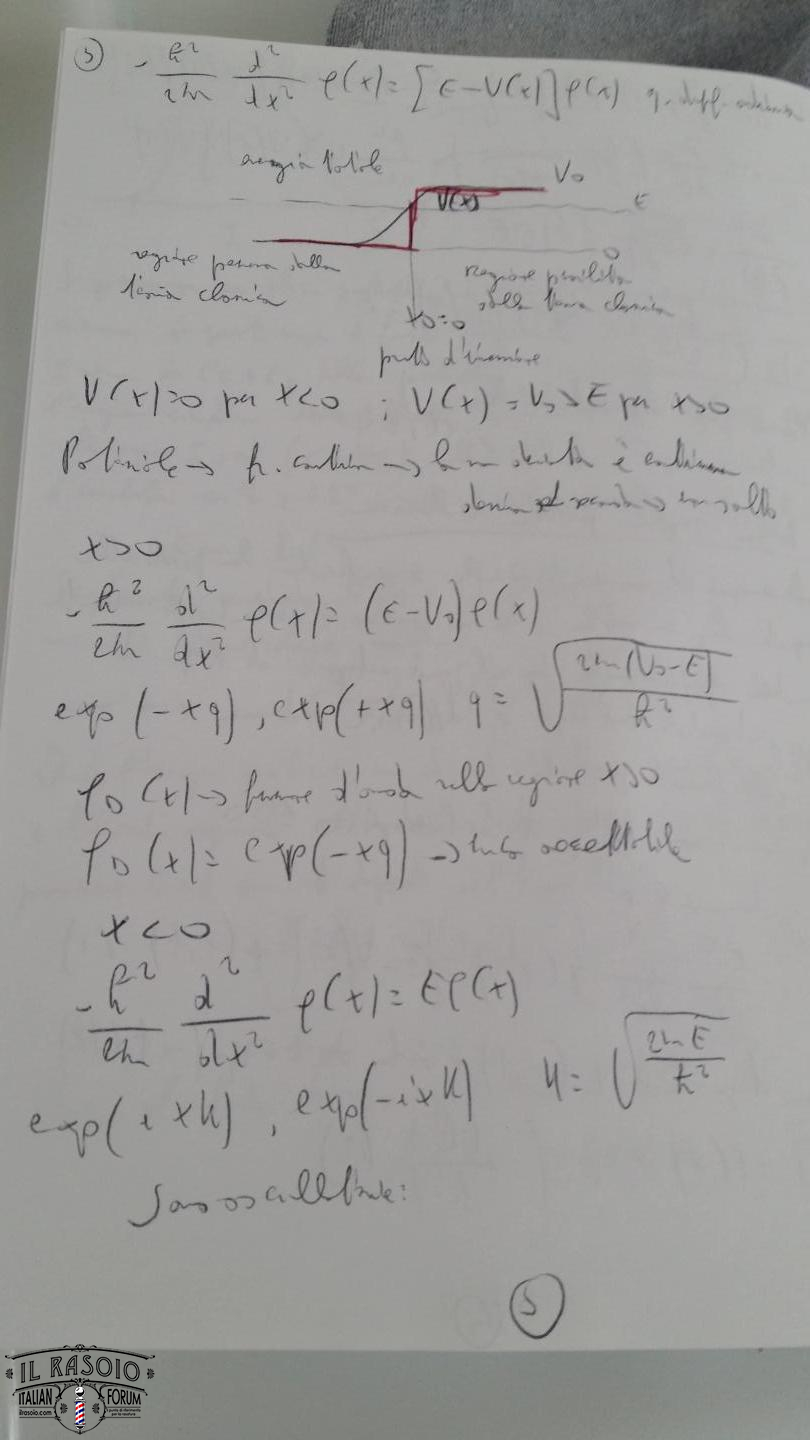 3) - ħ²/2m d²/dx² φ(x) = [E-V(x)]φ(x) q. diff. ordinaria
energia totale
V0
V(x)
E
0
regione permessa dalla
teoria classica
regione proibita
dalla teoria classica
x0=0
punto d'inversione
V(x)=0 per x<0 ; V(x) = V0 > E per x>0
Potenziale → continua → derivata è continua
derivata → salto
x>0
- ħ²/2m d²/dx² φ(x) = (E-V0)φ(x)
exp(-xq), exp(+xq) q = √(2m(V0-E)/ħ²)
φD(x) → funzione d'onda nella regione x>0
φD(x) = exp(-xq) → accettabile
x<0
- ħ²/2m d²/dx² φ(x) = Eφ(x)
exp(ixk), exp(-ixk) k = √(2mE/ħ²)
sono accettate:
5
IL RASOIO
ITALIAN FORUM
ilrasoio.com